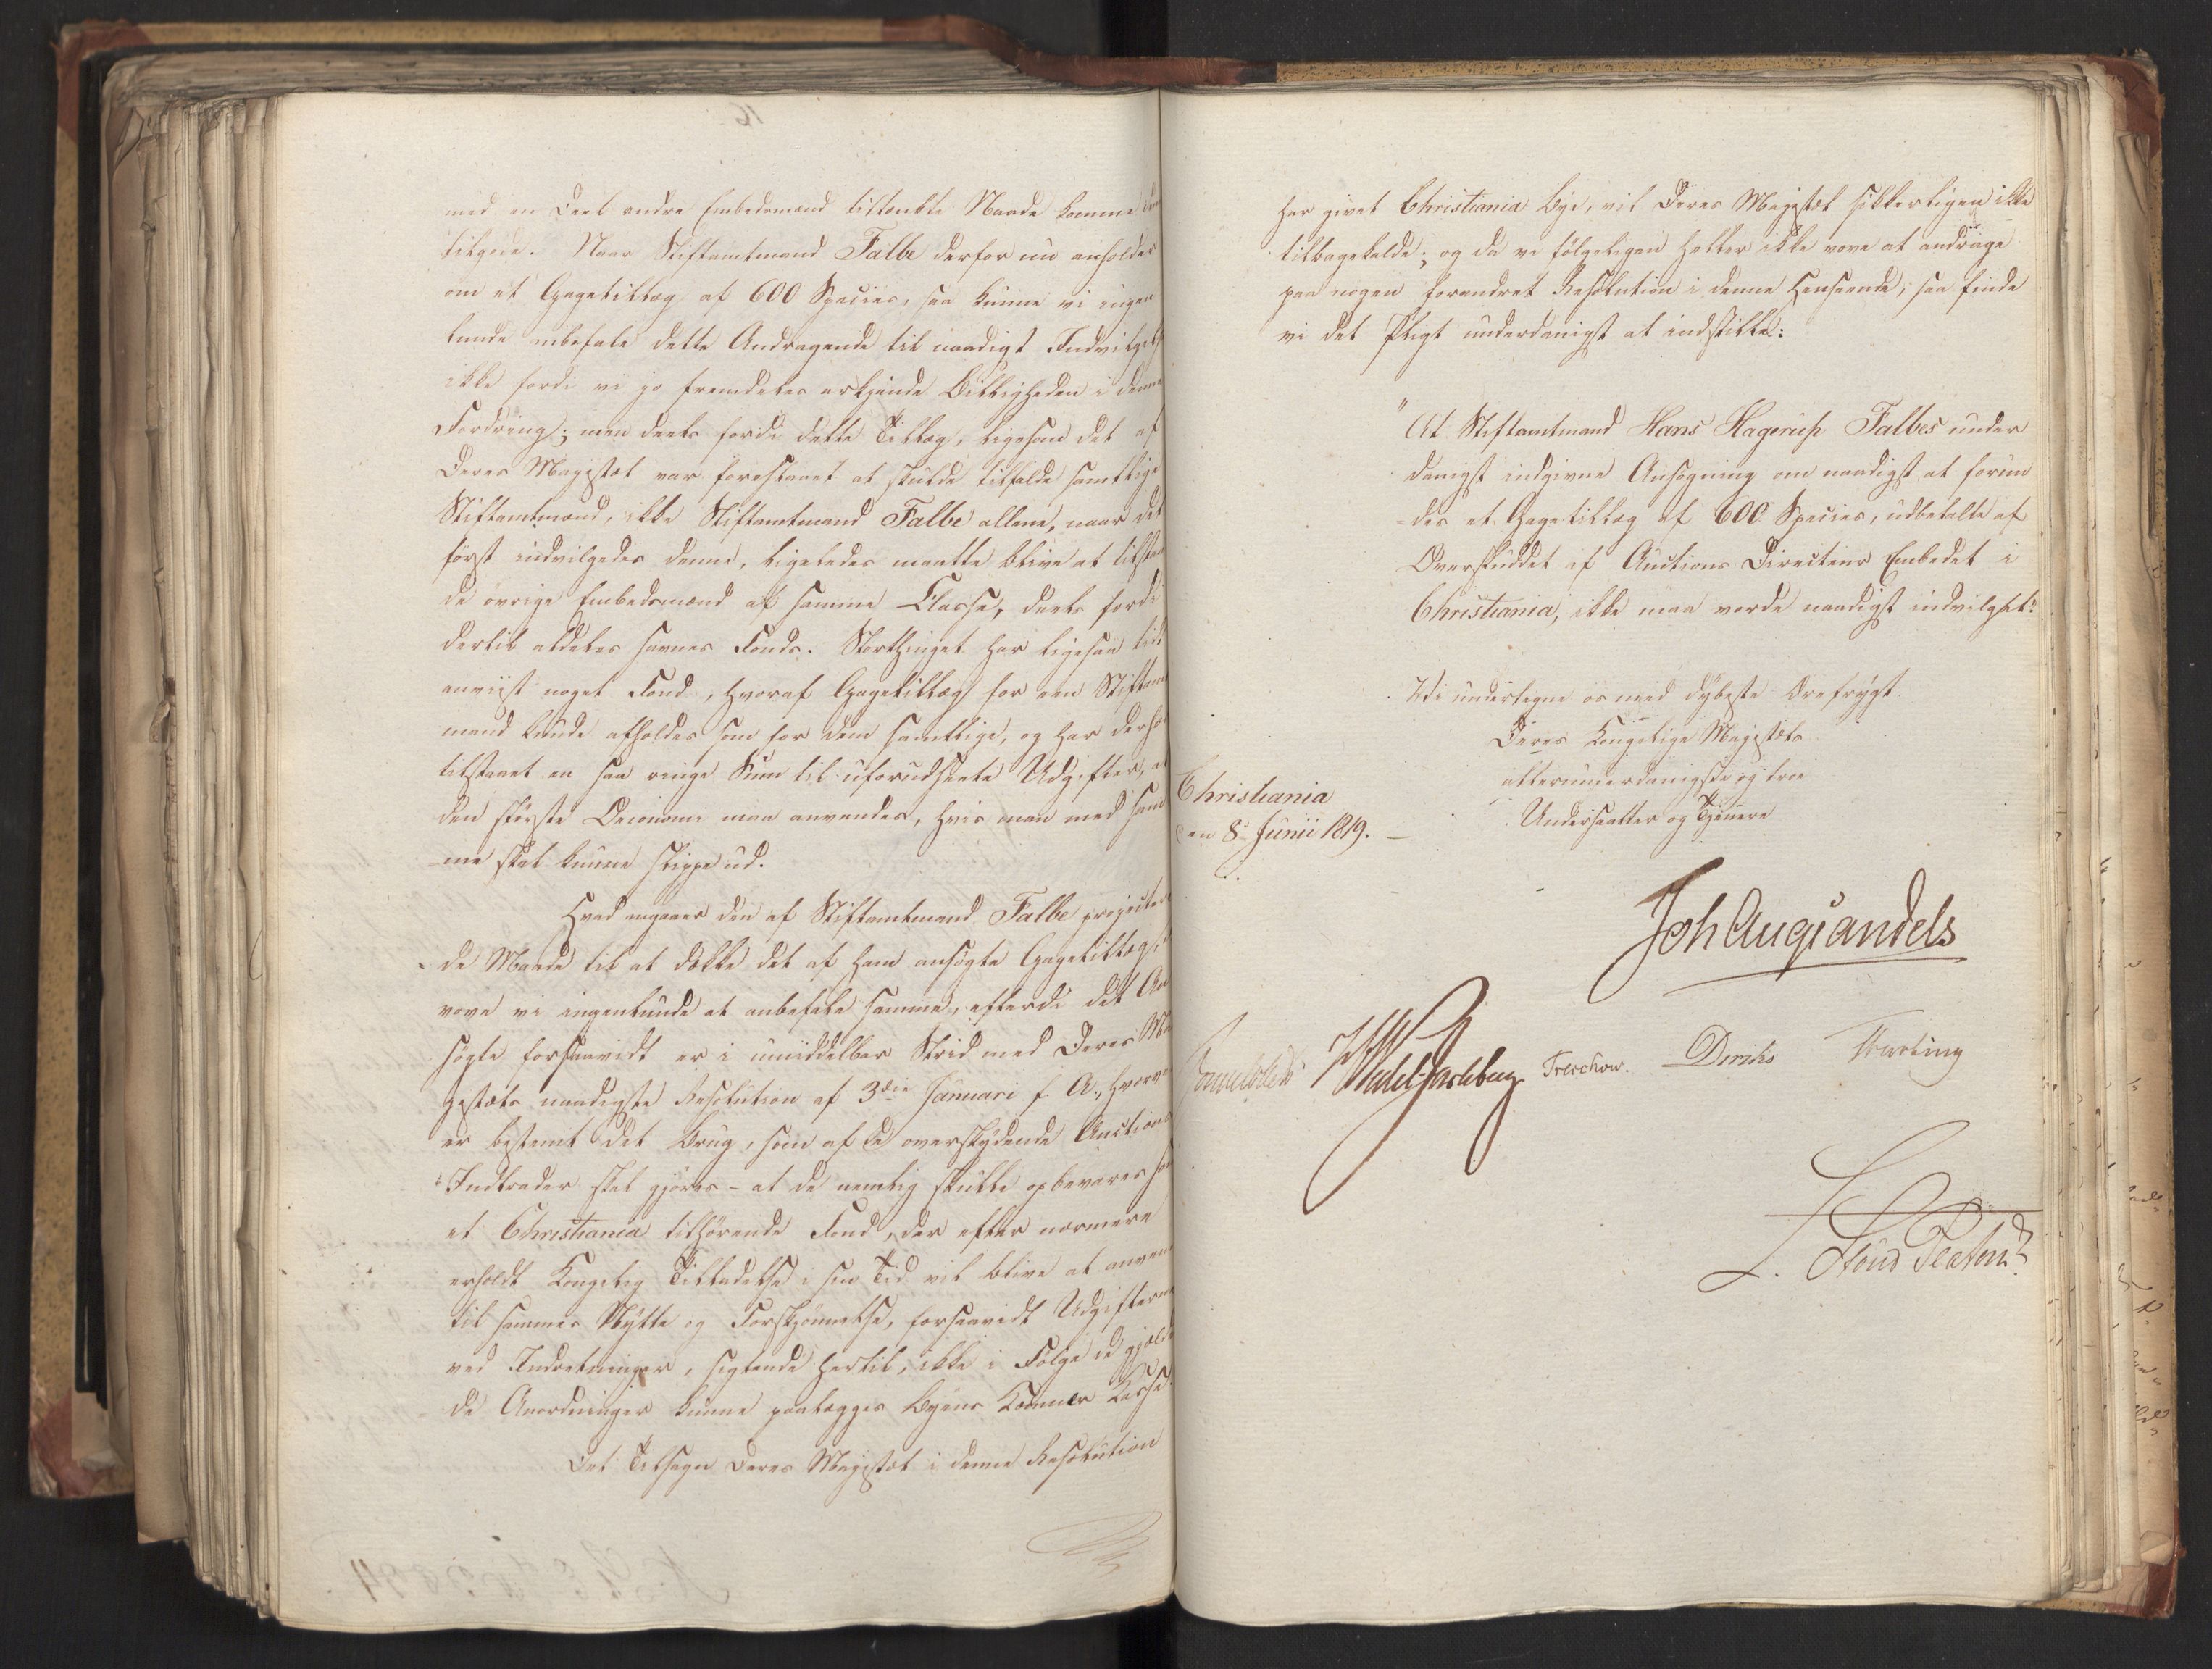 med en Deel andre Embedsmænd tiltænkte Naade komme
tilgode. Naar Stiftamtmand Falbe derfor nu anholder
om et Gagetillæg af 600 Species, saa kunne vi ingen
lunde anbefale dette Andragende til naadigst Indvilgelse
ikke fordi vi jo fremdeles erkjende Billigheden i denne
Fordring; men deels fordi dette Tillæg, ligesom det af
Deres Majestæt var foreslaaet at skulde tilfalde samtlige
Stiftamtmænd, ikke Stiftamtmand Falbe allene, naar det
først indvilgedes denne, ligeledes maatte blive at tilstaae
de øvrige Embedsmænd af samme Classe, deels fordi
dertil aldeles savnes Fonds. Storthinget har ligesaa lidt
anviist noget Fond, hvoraf Gagetillæg for een Stiftamt
mand kunde afholdes som for dem samtlige, og har derhos
tilstaaet en saa ringe Sum til uforudseete Udgifter, at
den største Oeconomi maa anvendes, hvis man med sam
-me skal kunne slippe ud.
Hvad angaaer den af Stiftamtmand Falbe projectere
de Maade til at dække det af ham ansøgte Gagetillæg,
vove vi ingenlunde at anbefale samme, efterdi det An
søgte forsaavidt er i umiddelbar Strid med Deres Ma
jestæts naadigste Resolution af 3die Januari f. A., hvorved
er bestemt det Brug, som af de overskydende Auctions
Indtrader skal gjøres - at de nemlig skulle opbevares som
et Christiania tilhørende Fond, der efter nærmere
erholdt Kongelig Tilladelse i sin Tid vil blive at anvende
til sammes Nytte og Forskjønnelse, forsaavidt Udgifterne
ved Indretninger, sigtende hertil, ikke i Følge de gjælden
de Anordninger kunne paalægges Byens Kæmner Kasse.
Det Tilsagn Deres Majestæt i denne Resolution
har givet Christiania Bye, vil Deres Majestæt sikkerligen ikke
tilbagekalde; og da vi følgeligen heller ikke vove at andrage
paa nogen forandret Resolution i denne Henseende, saa finde
vi det Pligt underdanigst at indstille:
"At Stiftamtmand Hans Hagerup Falbes under
danigst indgivne Ansøgning om naadigst at forun
-des et Gagetillæg af 600 Species, udbetalte af
Overskuddet af Auctions Directeur Embedet i
Christiania, ikke maa vorde naadigst indvilget."
Vi undertegne os med dybeste Ærefrygt
Deres Kongelige Majestæts
allerunderdanigste og troe
Undersaatter og Tjenere
Christiania
den 8de Junii 1819.
Joh Aug Sandels
Sommerhielm Wedel Jarlsberg Treschow. Diriks Fasting
L. Stoud Platou